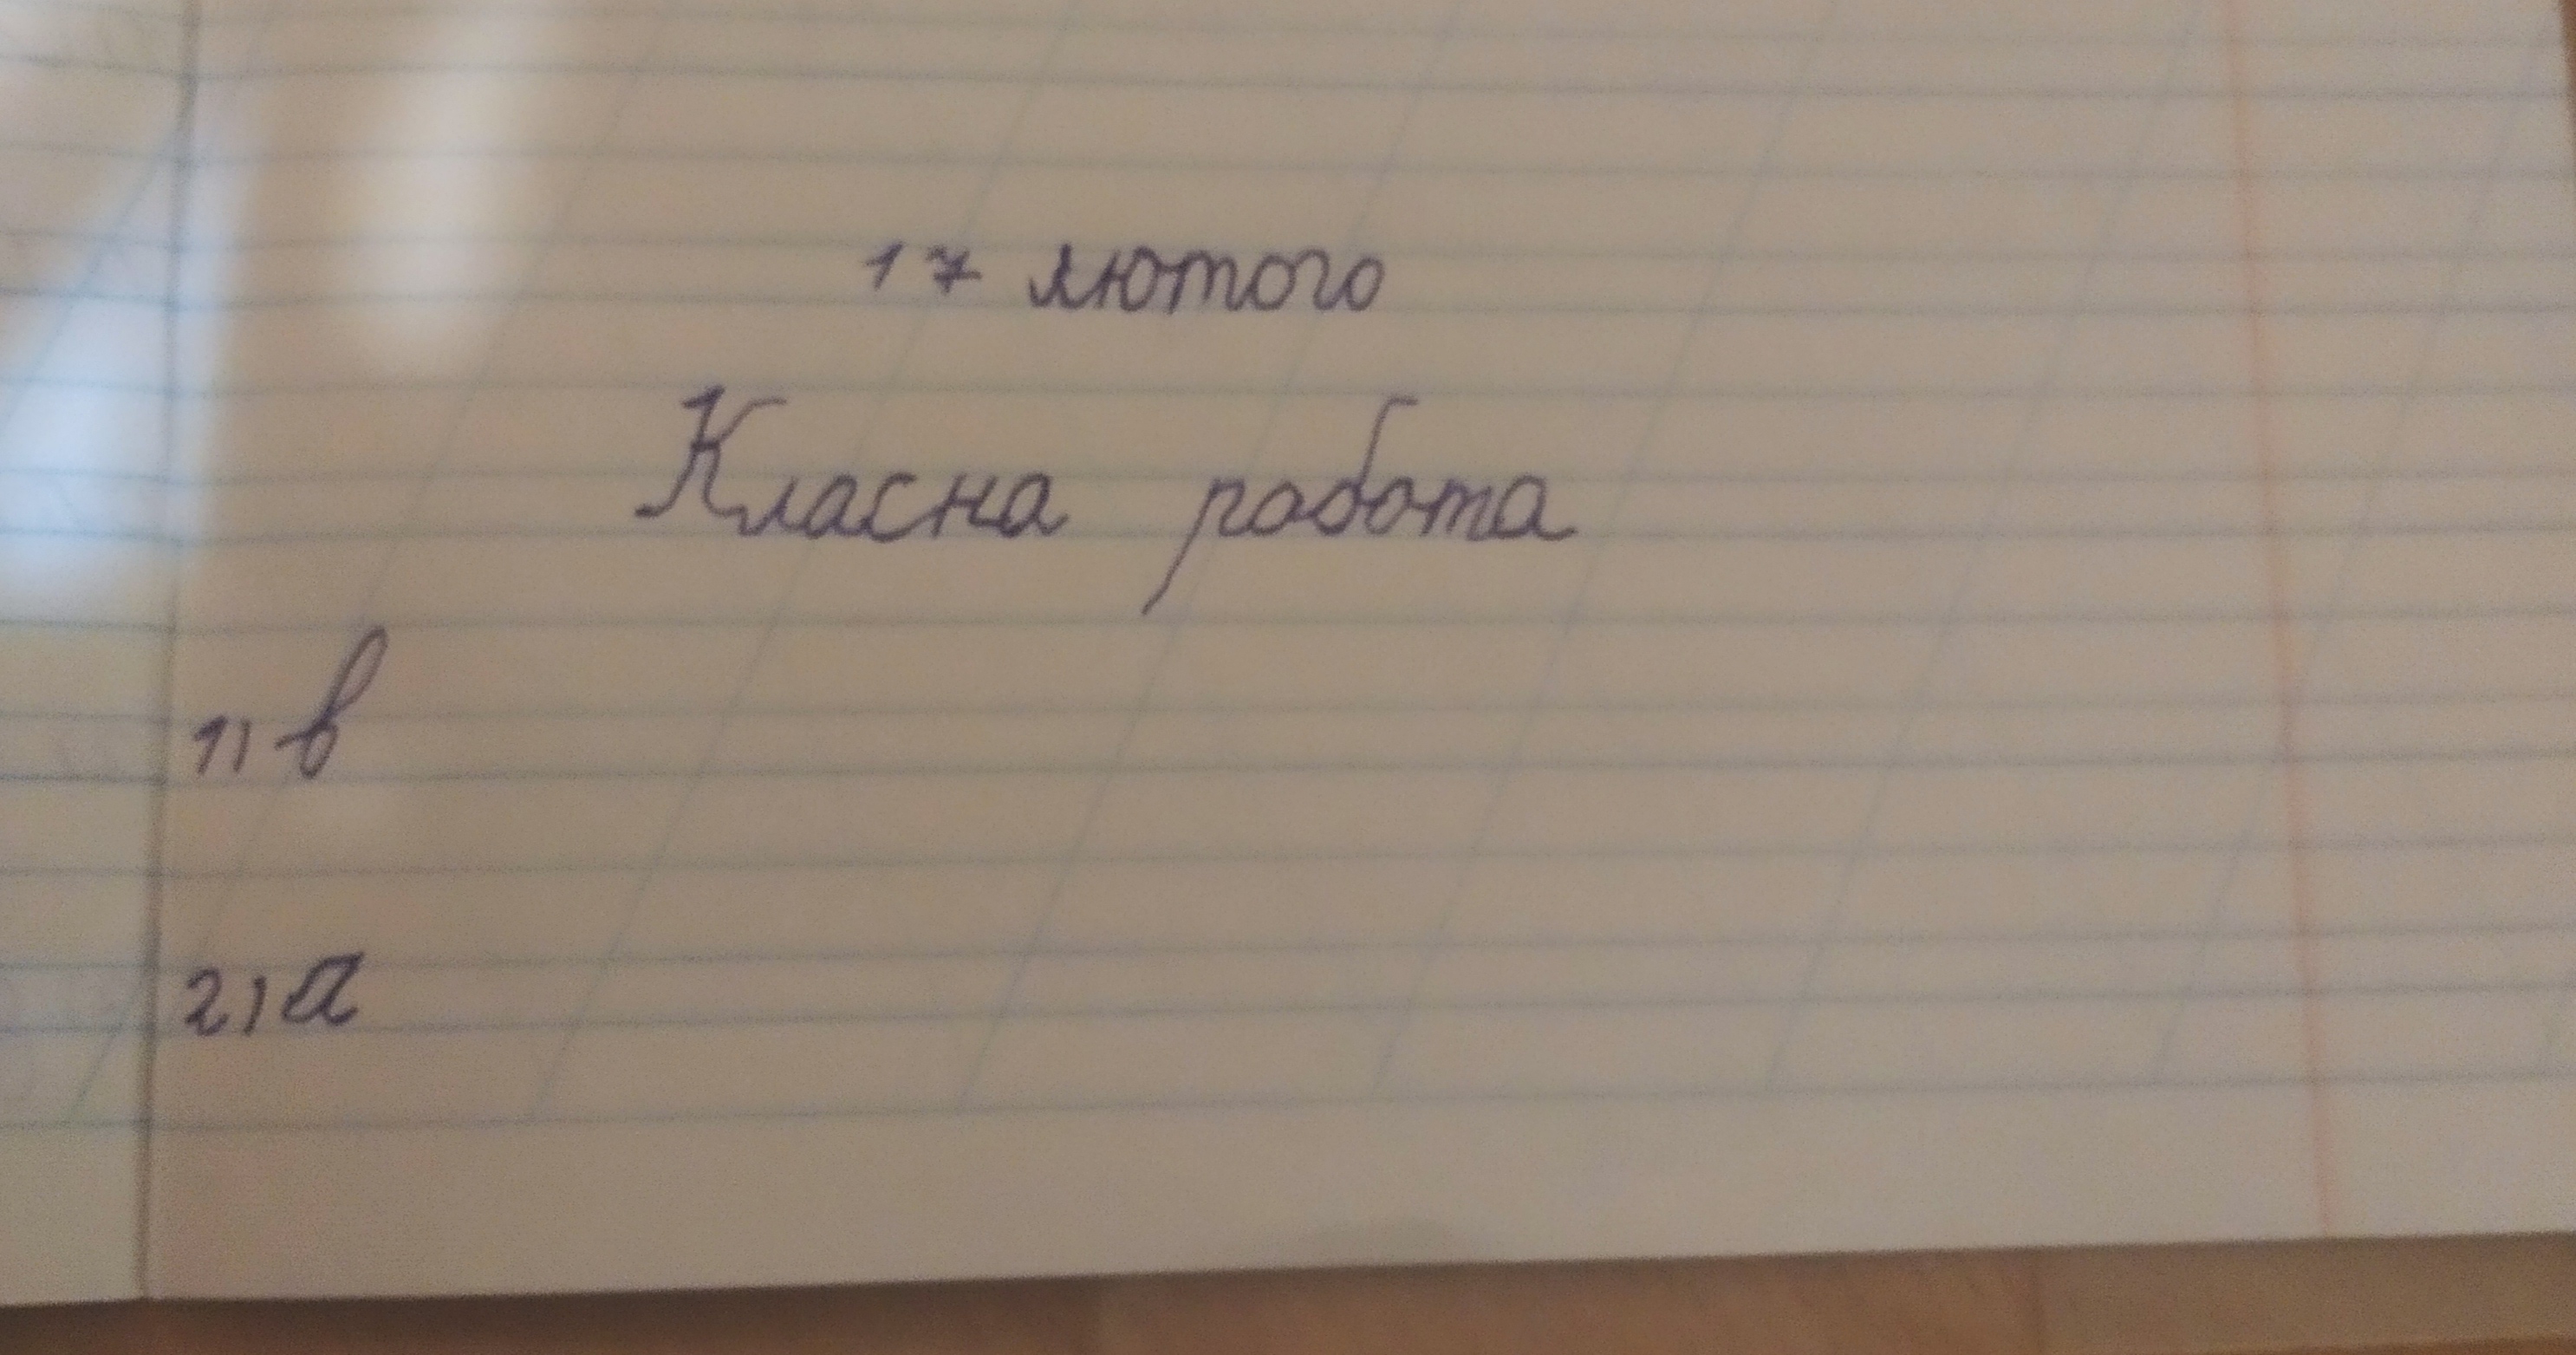 17 лютого
Класна робота
1) в
2) а